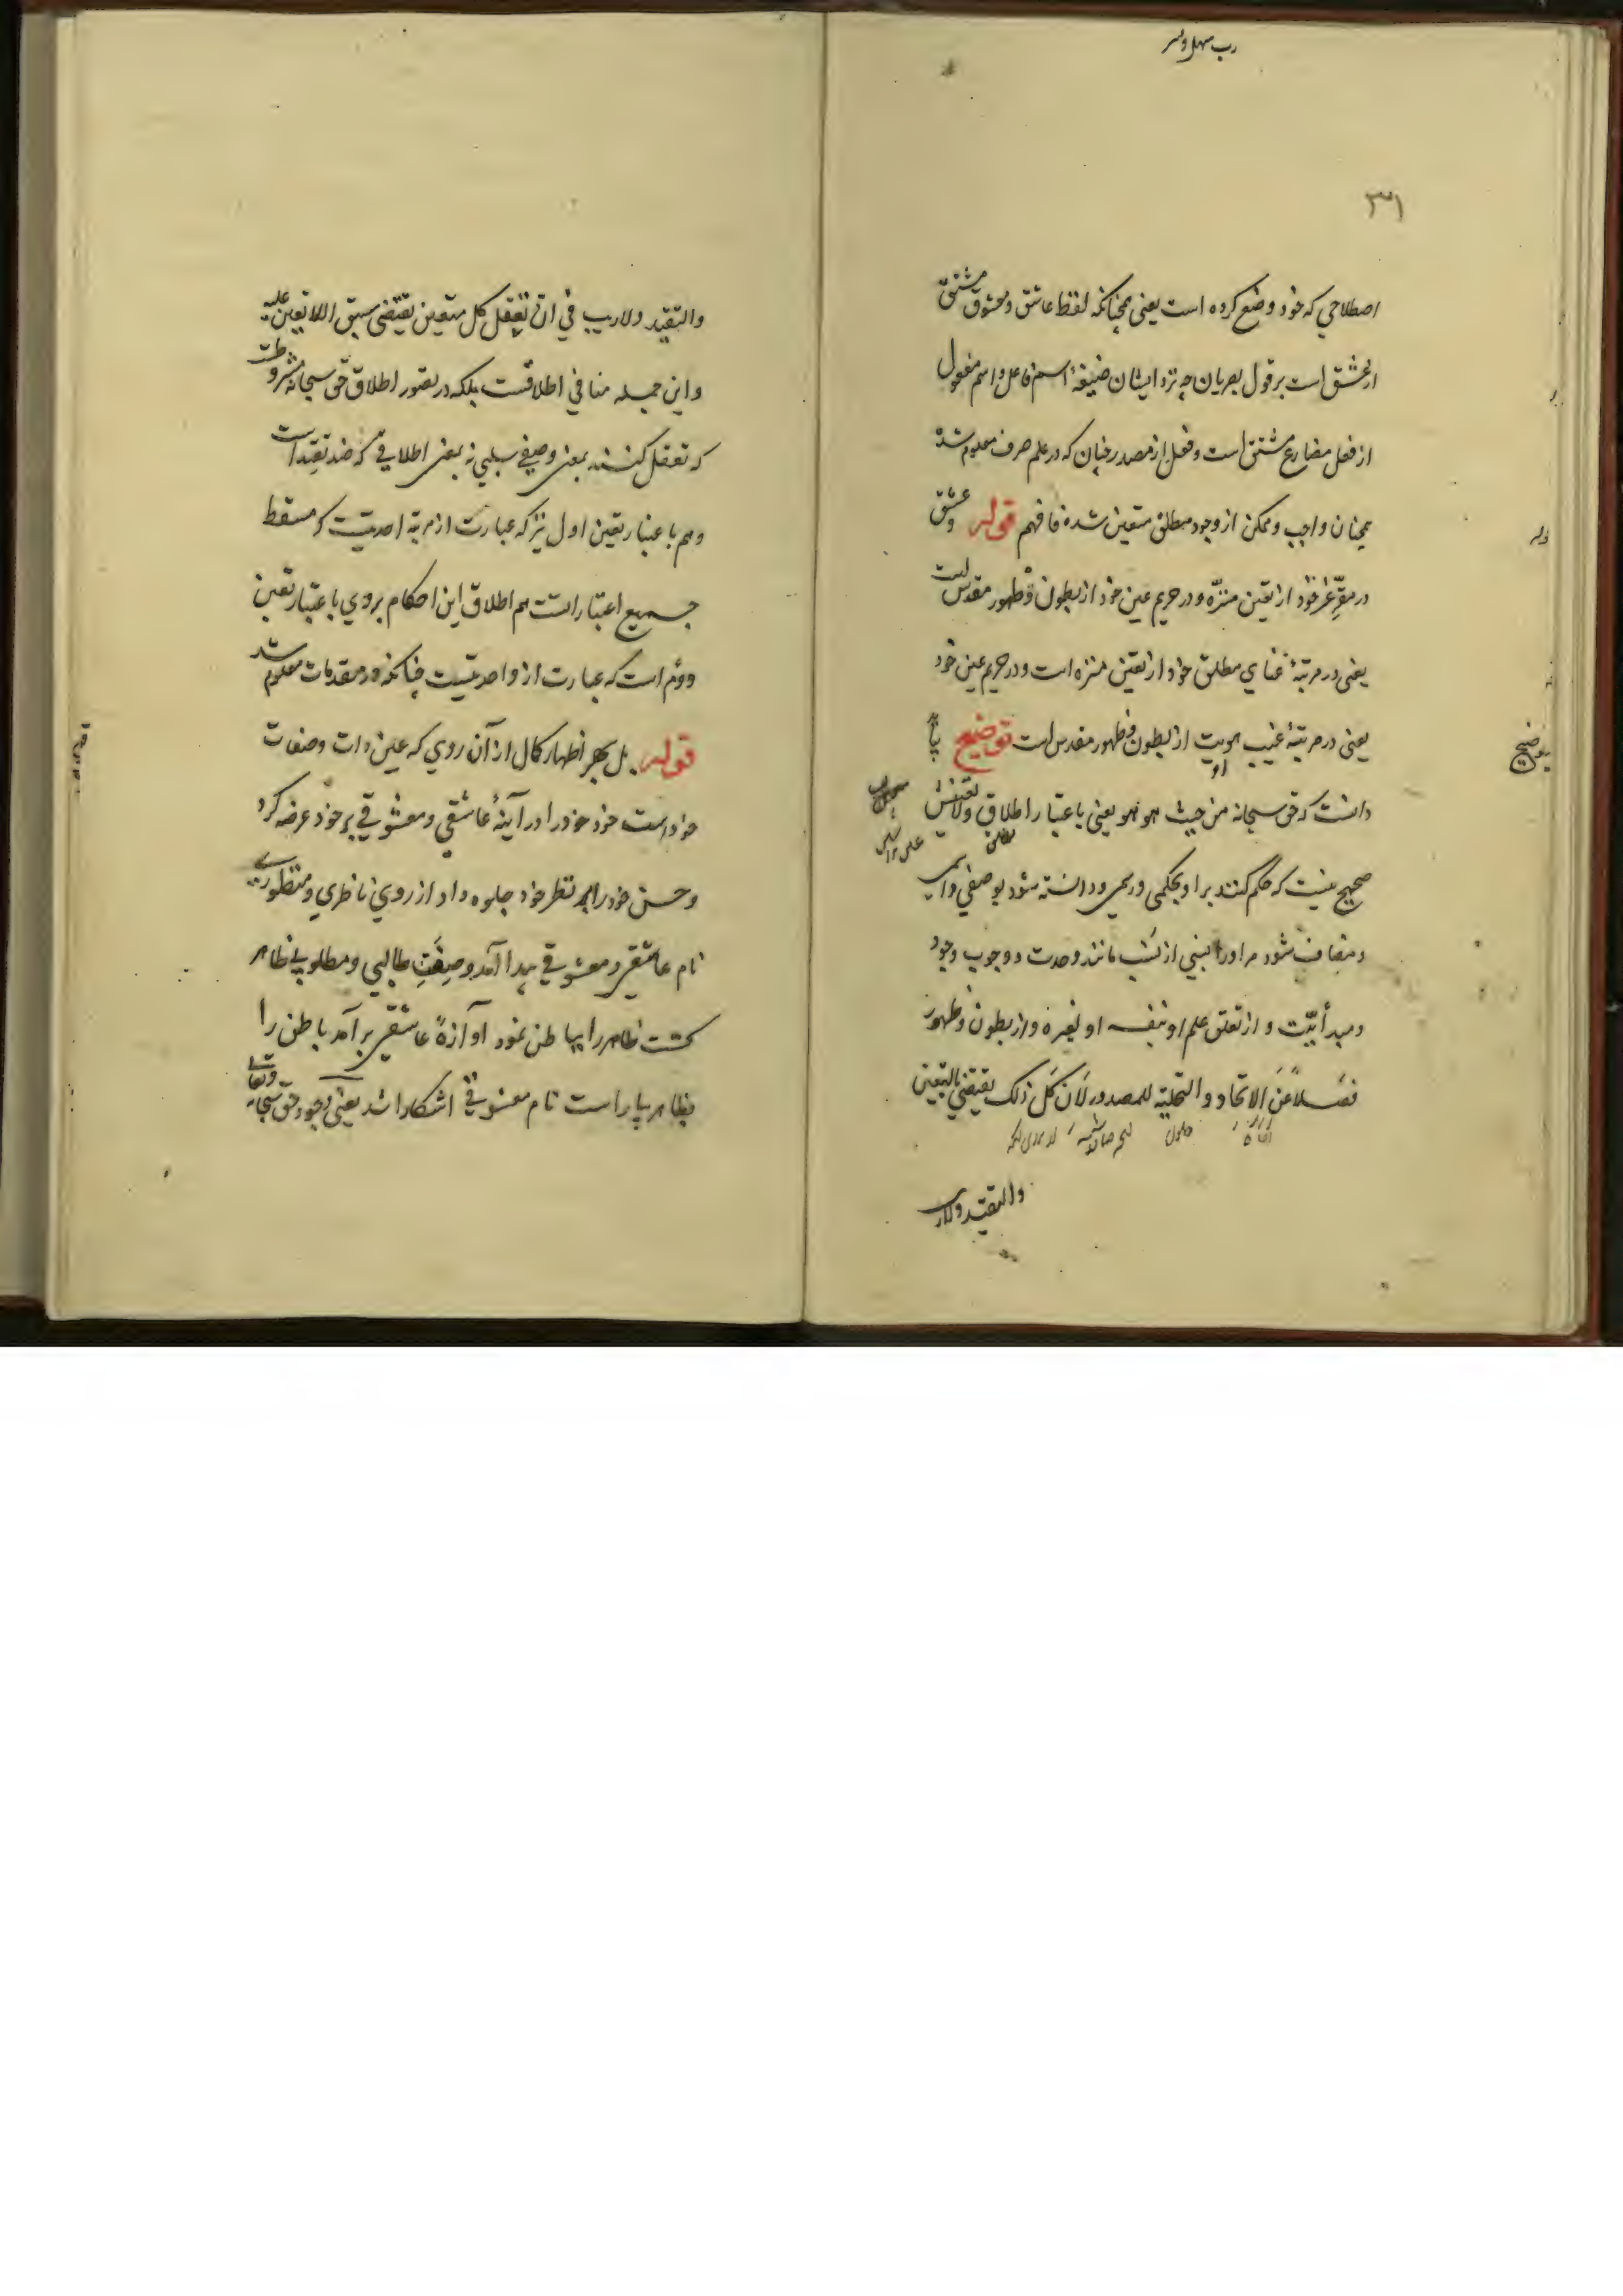 ۳۱
اصطلاحي که خود وضع کرده است یعنی همچنانکه لفظ عاشق و معشوق مشتق
از عشق است بر قول بصریان چه نزد ایشان صیغهٔ اسم فاعل و اسم مفعول
از فعل مضارع مشتق است و فعل از مصدر چنان که در علم صرف معلوم شد
همچنان واجب و ممکن از وجود مطلق متعین شده فافهم قوله وعشق
در مقر عز خود از تعین منزّه و در حریم عین خود از بطون و ظهور مقدس است
یعنی در مرتبهٔ غنای مطلق خود از تعین منزه است و در حریم عین خود
یعنی در مرتبهٔ غیب هویت او از بطون و ظهور مقدس است توضیح باید
دانست که حق سبحانه من حیث هو هو یعنی باعتبار اطلاق ولا تعینش
صحیح نیست که حکم کنند بر او بحکمی و رسمی و دانسته شود بوصفی و اسمی
و مضاف شود مر او را نسبتی از نسب مانند وحدت و وجوب وجود
و مبدأییّت و از تعلق علم او بنفسه او لغیره و از بطون و ظهور
فضلاً عن الاتحاد و التحلیة للمصدور لان کل ذلک یقتضی التعین
والتقیّد ولاریب
والتقیّد ولاریب في انّ تعقل کل متعین یقتضي سبق اللاتعین علیه
و این جمله منافی اطلاقست بلکه در تصور اطلاق حق سبحانه مشروطست
که تعقل کنند بمعنی وصفی سلبی نه بمعنی اطلاقی که ضد تقیّد است
و هم باعتبار تعین اول نیز که عبارت از مرتبهٔ احدیت که مسقط
جمیع اعتبار است هم اطلاق این احکام بروی باعتبار تعین
دوّم است که عبارت از واحدیتست چنانکه در مقدمات معلوم شد
قوله بل بهر اظهار کمال از آن روی که عین ذات و صفات
خود است خود خود را در آینهٔ عاشقی و معشوقی بر خود عرضه کرد
و حسن خود را بر نظر خود جلوه داد از روی ناظری و منظوری
نام عاشقی و معشوقی پیدا آمد و صفت طالبی و مطلوبی ظاهر
گشت ظاهر را بباطن نمود آوازهٔ عاشقی برآمد باطن را
بظاهر بیاراست نام معشوقی آشکارا شد یعنی وجود حق سبحانه وتعالی